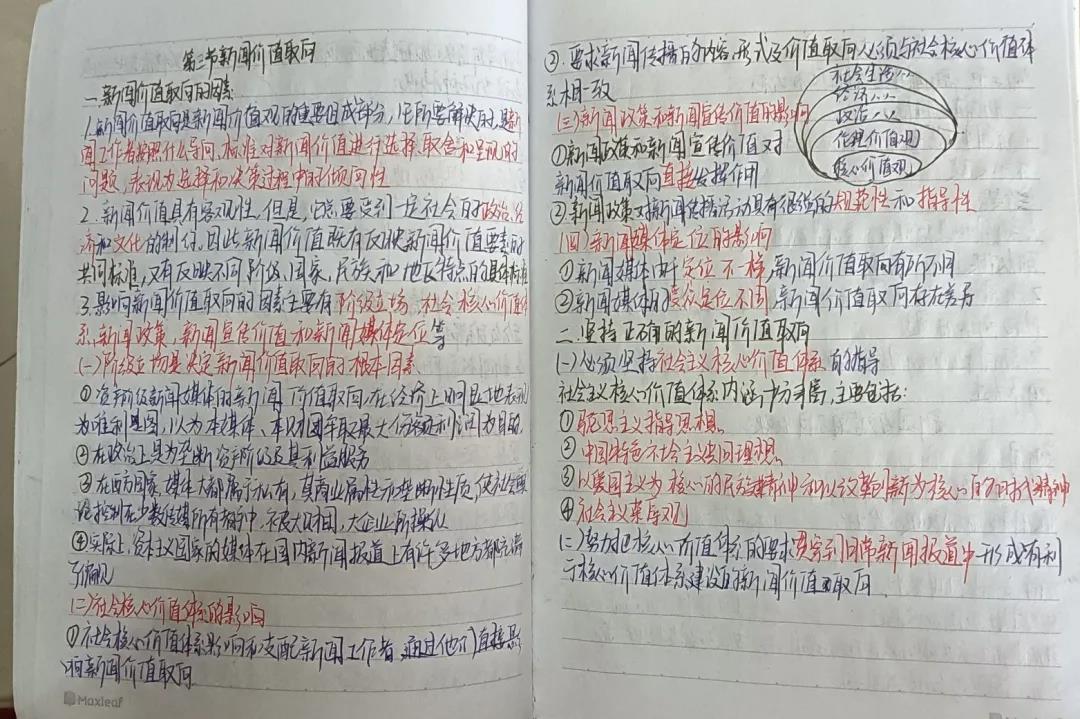 第三节新闻价值取向
一.新闻价值取向的因素
1.新闻价值取向是新闻价值观的重要组成部分,它所要解决的,是新
闻工作者按照什么导向、标准对新闻价值进行选择、取舍和呈现的
问题,表现为选择和决策过程中的倾向性
2.新闻价值具有客观性,但是,它总要受到一定社会的政治、经
济和文化的制约,因此新闻价值既有反映新闻价值要素的
共同标准,又有反映不同阶级、国家、民族和地区特点的具体标准
3.影响新闻价值取向的因素主要有阶级立场、社会核心价值体
系、新闻政策,新闻宣传价值和新闻媒体定位等
(一)阶级立场是决定新闻价值取向的根本因素
①资产阶级新闻媒体的新闻价值取向,在经济上明显地表现
为唯利是图,以为本媒体、本财团牟取最大份额利润为目的
②在政治上是为垄断资产阶级及其利益服务
③在西方国家,媒体大都属于私有,其商业属性和垄断性质,使社会舆
论控制在少数传媒所有者手中,被大财团,大企业所操纵
④实际上,资本主义国家的媒体在国内新闻报道上有许多地方都充满
了偏见
(二)社会核心价值体系的影响
①社会核心价值体系影响和支配新闻工作者,通过他们直接影
响新闻价值取向
②.要求新闻传播的内容、形式及价值取向必须与社会核心价值体
系相一致
社会生活...
经济...
政治...
伦理价值观
核心价值观
(三)新闻政策和新闻宣传价值的影响
①新闻政策和新闻宣传价值对
新闻价值取向直接发挥作用
②新闻政策对新闻传播活动具有很强的规范性和指导性
(四)新闻媒体定位的影响
①新闻媒体由于定位不一样,新闻价值取向有所不同
②新闻媒体的受众定位不同,新闻价值取向存在差异
二.坚持正确的新闻价值取向
(一)必须坚持社会主义核心价值体系的指导
社会主义核心价值体系内涵十分丰富,主要包括:
①马克思主义指导思想.
②中国特色社会主义共同理想.
③以爱国主义为核心的民族精神和以改革创新为核心的时代精神
④社会主义荣辱观
(二)努力把核心价值体系的要求贯穿到日常新闻报道中,形成有利
于核心价值体系建设的新闻价值取向.
Maxleaf